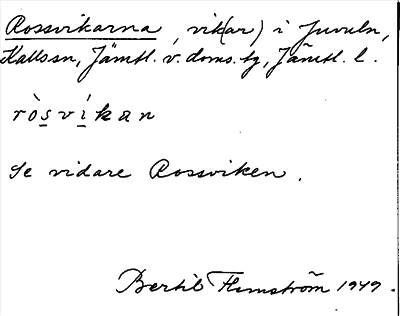 Rossvikarna, vik(ar) i Juveln,
Kallssn, Jämtl. v. doms.tg, Jämtl. l.
ròsvíkan
Se vidare Rossviken.
Bertil Flemström 1949.